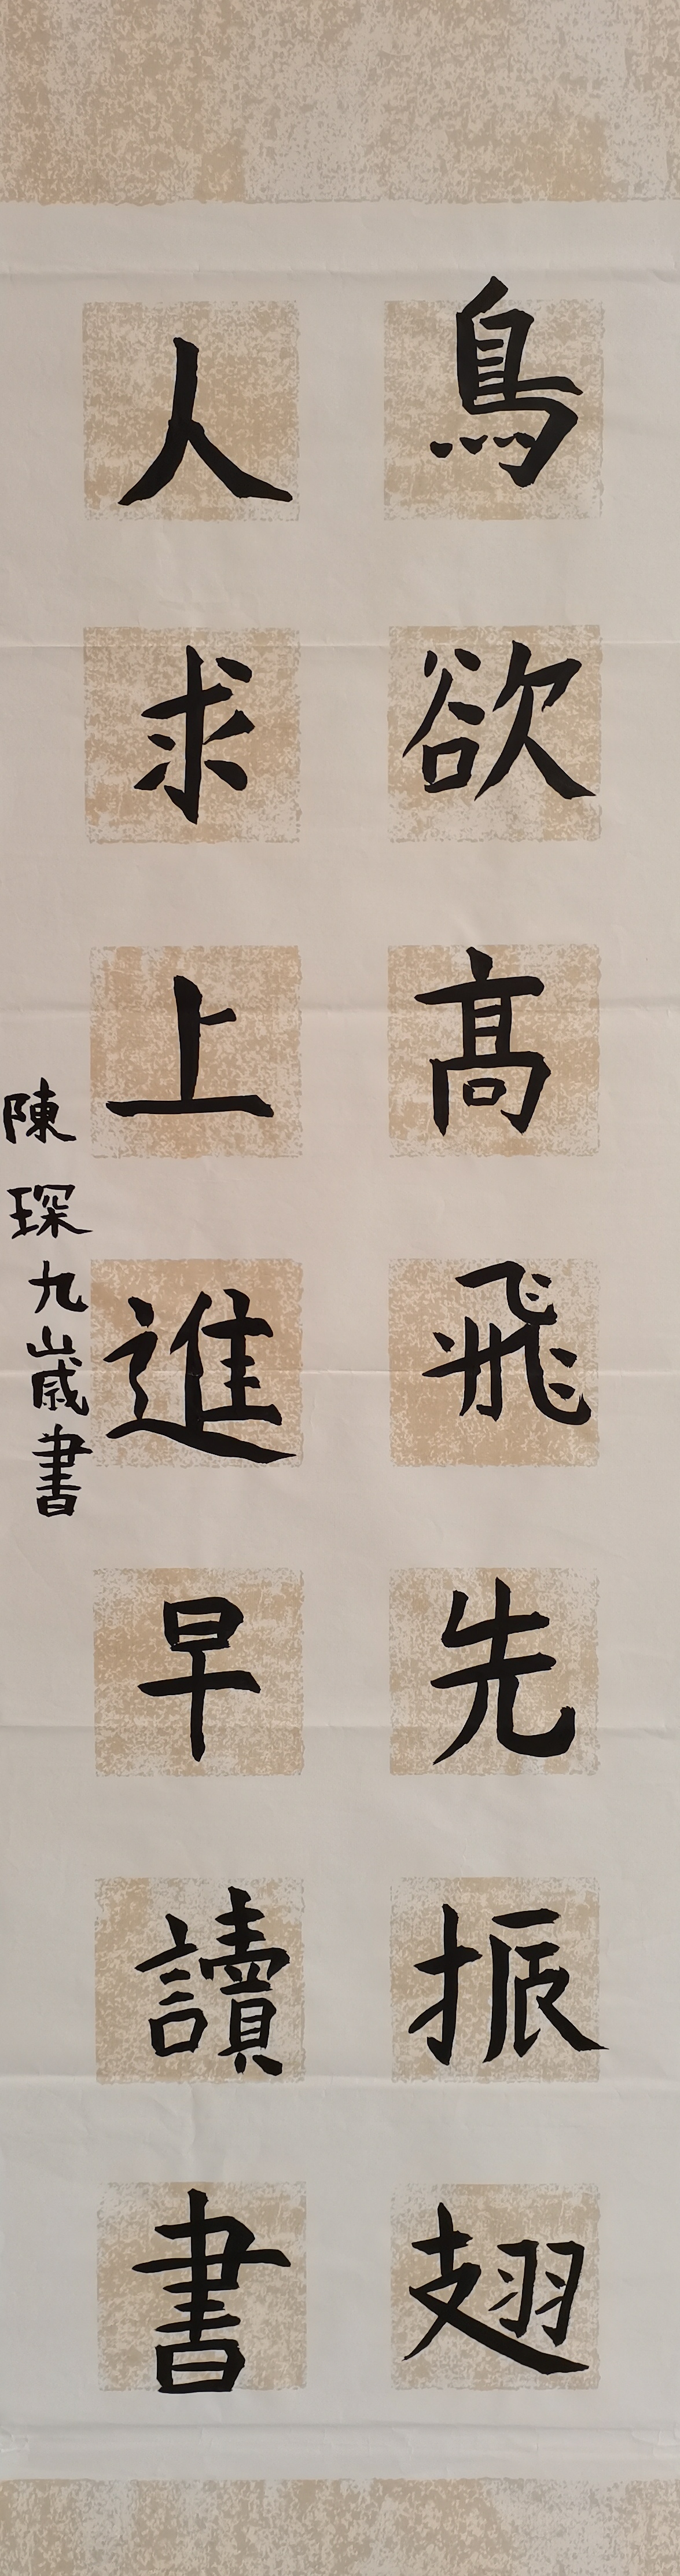 鳥欲髙飛先振翅
人求上進早讀書
陳琛九歲書